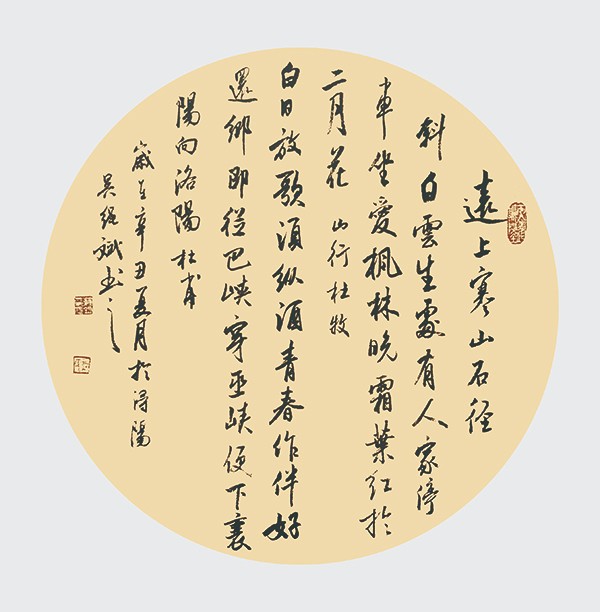 遠上寒山石径
斜白雲生處有人家停
車坐愛楓林晚霜葉红於
二月花 山行杜牧
白日放歌須纵酒青春作伴好
還鄉即從巴峡穿巫峡便下襄
陽向洛陽 杜甫
歲在辛丑夏月於潯陽
吴斌书之